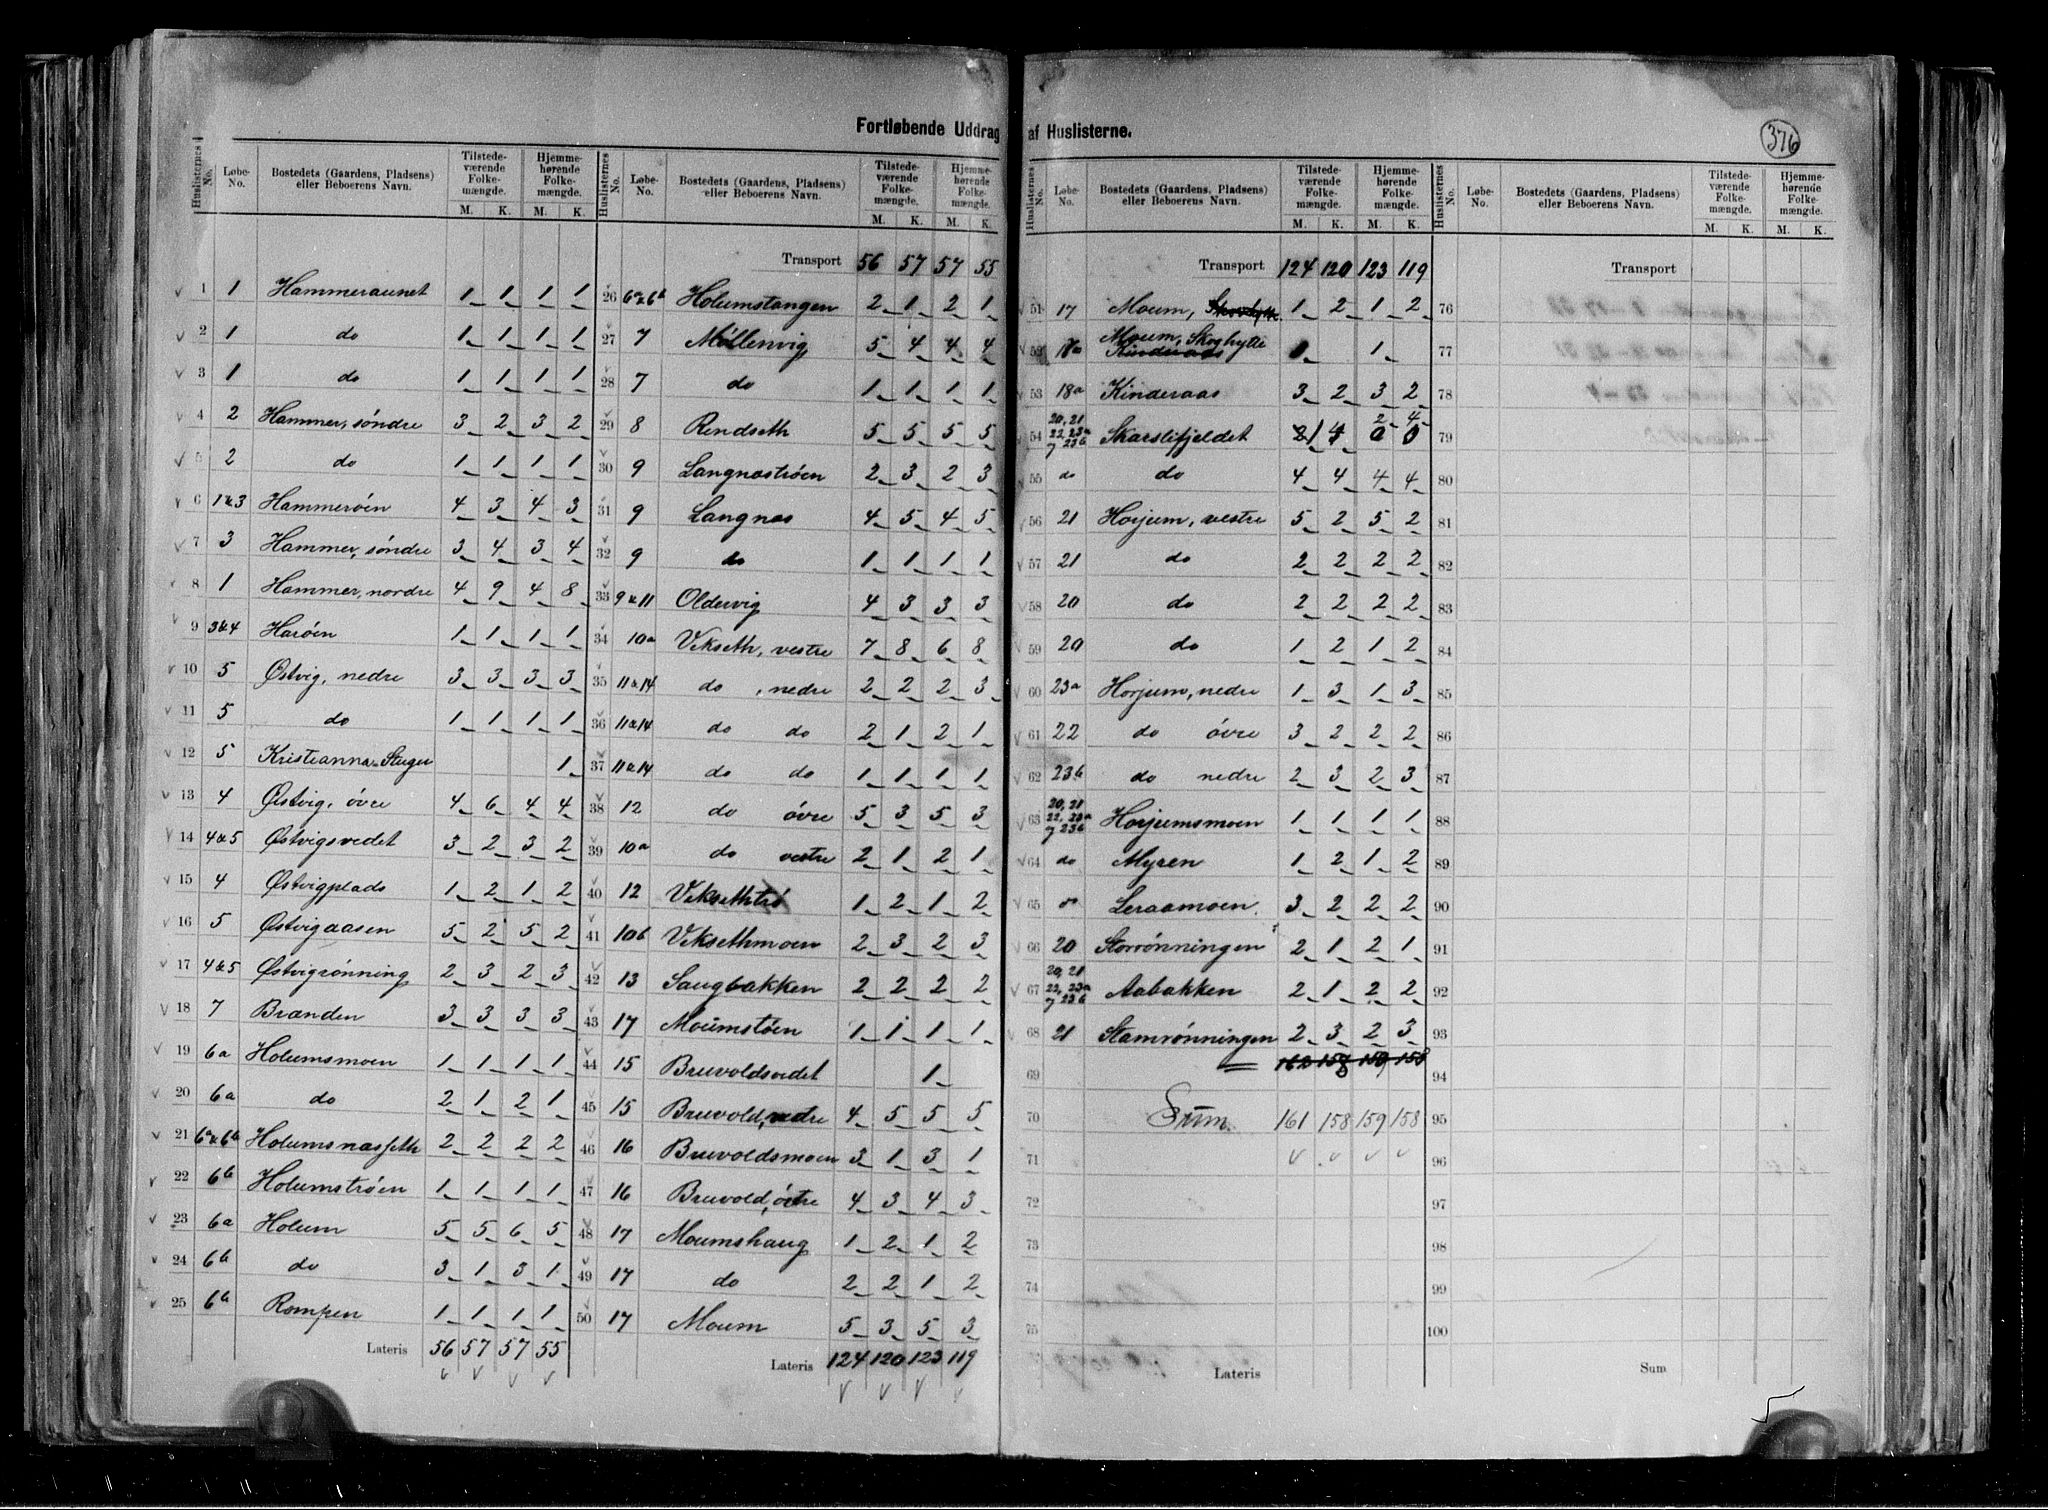 Fortløbende Uddrag af Huslisterne.
376
Huslisternes No. Løbe-No. Bostedets (Gaardens, Pladsens) eller Beboerens Navn. Tilstedeværende Folkemængde. M. K. Hjemmehørende Folkemængde. M. K.
1 1 Hammeraunet 1 1 1 1
2 1 do 1 1 1 1
3 1 do 1 1 1 1
4 2 Hammer, søndre 3 2 3 2
5 2 do 1 1 1 1
6 1&3 Hammerøien 4 3 4 3
7 3 Hammer, søndre 3 4 3 4
8 1 Hammer, nordre 4 9 4 8
9 3&4 Harøin 1 1 1 1
10 5 Østvig, nedre 3 3 3 3
11 5 do 1 1 1 1
12 5 Kristianna Stuger 1
13 4 Østvig, övre 4 6 4 4
14 4&5 Østvigsvedet 3 2 3 2
15 4 Østvigplads 1 2 1 2
16 5 Østvigaasen 5 2 5 2
17 4&5 Østvigrønning 2 3 2 3
18 7 Brænden 3 3 3 3
19 6a Holumsmoen 1 1 1 1
20 6a do 2 1 2 1
21 6a&6b Holumsnæsseth 2 2 2 2
22 6b Holumstrøen 1 1 1 1
23 6a Holum 5 5 6 5
24 6b do 3 1 3 1
25 6b Rompen 1 1 1 1
Lateris 56 57 57 55
Huslisternes No. Løbe-No. Bostedets (Gaardens, Pladsens) eller Beboerens Navn. Tilstedeværende Folkemængde. M. K. Hjemmehørende Folkemængde. M. K.
Transport 56 57 57 55
26 6a&6b Holumstangen 2 1 2 1
27 7 Möllenvig 5 4 4 4
28 7 do 1 1 1 1
29 8 Rendseth 5 5 5 5
30 9 Langnæstrøen 2 3 2 3
31 9 Langnæs 4 5 4 5
32 9 do 1 1 1 1
33 9&11 Oldervig 4 3 3 3
34 10a Vekseth, vestre 7 8 6 8
35 11&14 do, nedre 2 2 2 3
36 11&14 do do 2 1 2 1
37 11&14 do do 1 1 1 1
38 12 do øvre 5 3 5 3
39 10a do vestre 2 1 2 1
40 12 Veksethtrø 1 2 1 2
41 10b Veksethmoen 2 3 2 3
42 13 Saugbakken 2 2 2 2
43 17 Moumstøen 1 1 1 1
44 15 Bruvoldsvedet 1
45 15 Bruvold, nedre 4 5 5 5
46 16 Bruvoldsmoen 3 1 3 1
47 16 Bruvold, östre 4 3 4 3
48 17 Moumshaug 1 2 1 2
49 17 do 2 2 1 2
50 17 Moum 5 3 5 3
Lateris 124 120 123 119
Huslisternes No. Løbe-No. Bostedets (Gaardens, Pladsens) eller Beboerens Navn. Tilstedeværende Folkemængde. M. K. Hjemmehørende Folkemængde. M. K.
Transport 124 120 123 119
51 17 Moum, 1 2 1 2
52 Moum, Skoghytte Kinderaas 1
53 18a Kinderaas 3 2 3 2
54 20, 21 22, 23a og 23b Skarslifjeldet 2 4
55 do do 4 4 4 4
56 21 Horjum, vestre 5 2 5 2
57 21 do 2 2 2 2
58 20 do 2 2 2 2
59 20 do 1 2 1 2
60 23a Horjum, nedre 1 3 1 3
61 22 do övre 3 2 2 2
62 23b do nedre 2 3 2 3
63 20, 21 22, 23a og 23b Horjumsmoen 1 1 1 1
64 do Myren 1 2 1 2
65 Leraamoen 3 2 2 2
66 20 Storrønningen 2 1 2 1
67 20, 21 22, 23a og 23b Aabakken 2 1 2 2
68 21 Stamrønningen 2 3 2 3
69
70 Sum 161 158 159 158
71
72
73
74
75
Lateris
Huslisternes No. Løbe-No. Bostedets (Gaardens, Pladsens) eller Beboerens Navn. Tilstedeværende Folkemængde. M. K. Hjemmehørende Folkemængde. M. K.
Transport
76
77
78
79
80
81
82
83
84
85
86
87
88
89
90
91
92
93
94
95
96
97
98
99
100
Sum